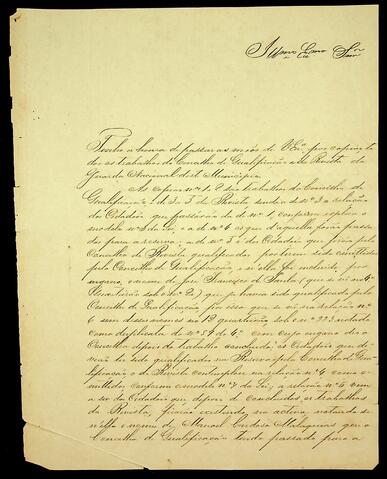 Illmo. Exmo. Snr.
Tenho a honra de passar as mãos de V. Exª. por copia to
dos os trabalhos do Conselho de Qualificação e de Revista da
Guarda Nacional deste Municipio.
As copias nos. 1 e 2 são trabalhos do Conselho de
Qualificação, e de 3 a 5 de Revista, sendo a de nº 3 a relação
dos Cidadãos que passárão da de nº 1, conforme explica o
modelo nº 3 da Lei, e a de nº 4 os que d'aquella forão passa
dos para a reserva, a de nº 5 é de Cidadãos que forão pelo
Conselho de Revista qualificados por terem sido omittidos
pelo Conselho de Qualificação, e si ella foi incluido por
engano, o nome de José Francisco de
Quarteirão sob o nº 2, que já havia sido qualificado pelo
Conselho de Qualificação, por isso que se vê na relação nº
6 sem desconto no 18 quarteirão sob o nº 223 notado
como duplicata do nº 59 do 6º com cujo engano deo o
Conselho depois do trabalho concluido; os Cidadãos que de
vião ser qualificados na Reserva pelo Conselho de Quali
ficação e de Revista contemplou na relação nº 4 como o
mittidos, conforme o modelo nº 4 da Lei; a relação nº 6 vem
a ser dos Cidadãos que depois de concluidos os trabalhos
da Revista, ficarão existindo no activo, notando se
n'ella o engano de Manoel Cardoso que o
Conselho de Qualificação tendo passado para a